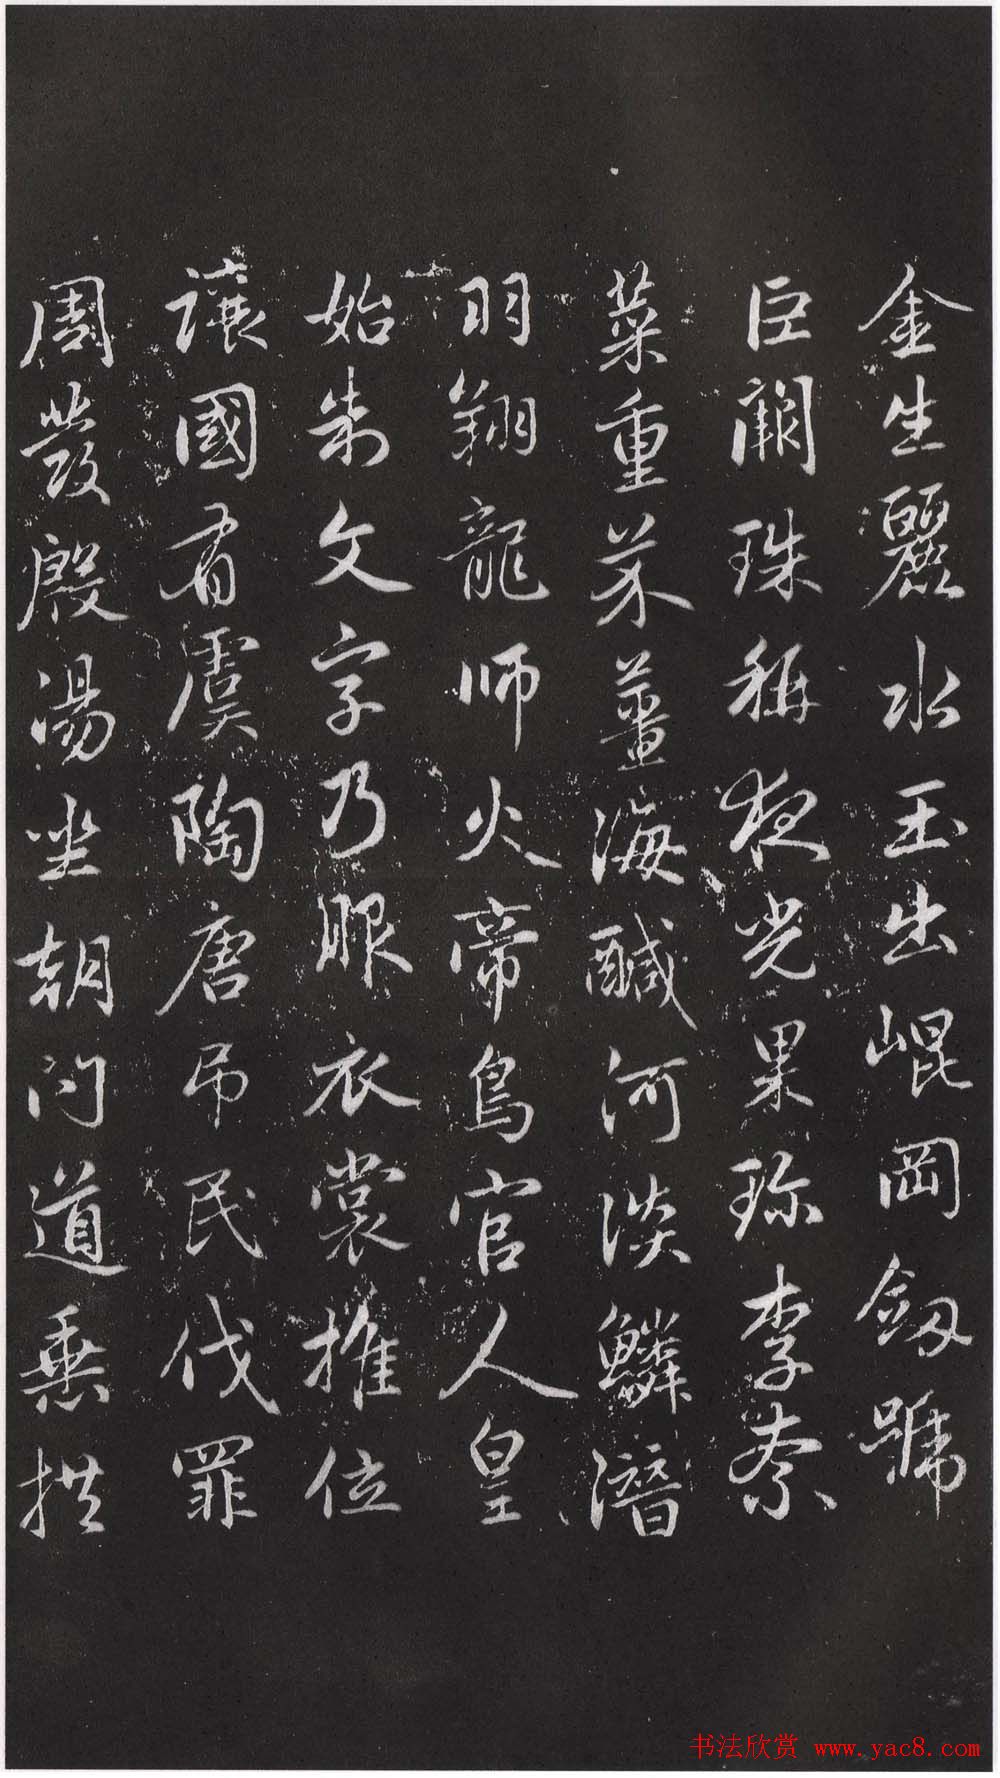 金生麗水玉出崐岡劔號
巨闕珠稱夜光果珎李柰
菜重芥薑海醎河淡鱗潛
羽翔龍師火帝鳥官人皇
始制文字乃服衣裳推位
讓國有虞陶唐吊民伐罪
周發殷湯坐朝問道垂拱
书法欣赏 www.yac8.com